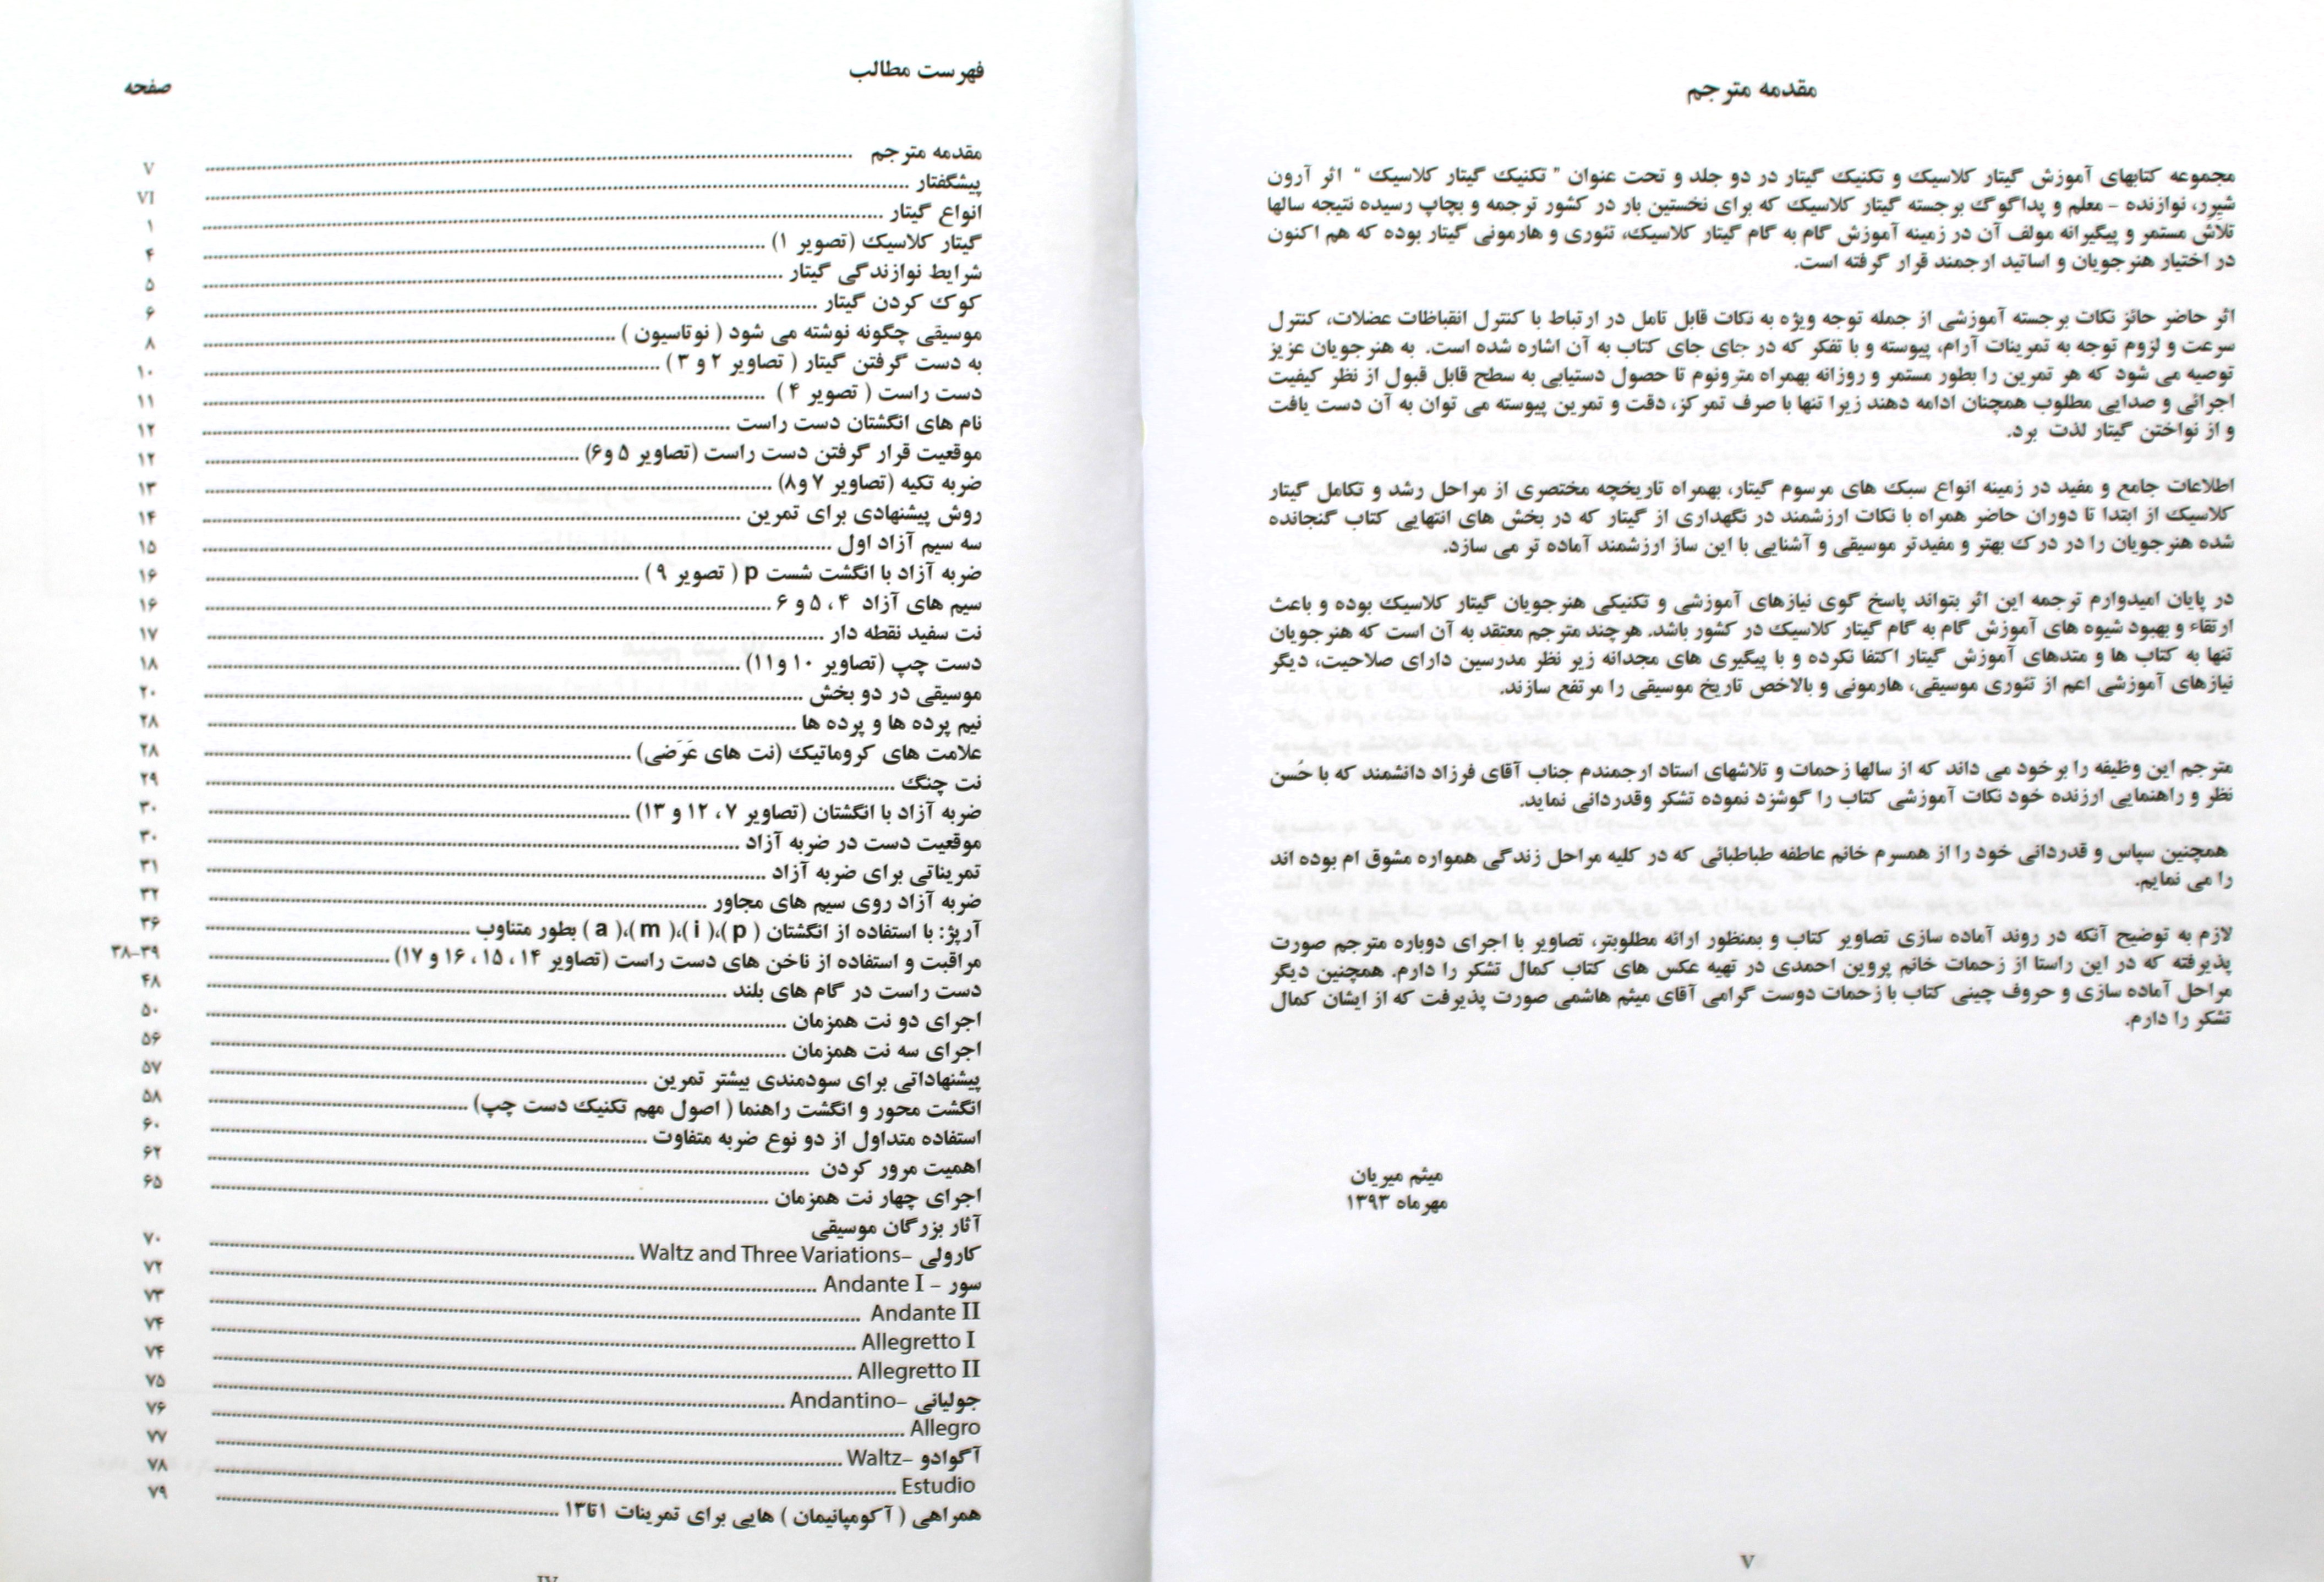 مقدمه مترجم
مجموعه کتابهای آموزش گیتار کلاسیک و تکنیک گیتار در دو جلد و تحت عنوان " تکنیک گیتار کلاسیک " اثر آرون
شیرر، نوازنده - معلم و پداگوگ برجسته گیتار کلاسیک که برای نخستین بار در کشور ترجمه و بچاپ رسیده نتیجه سالها
تلاش مستمر و پیگیرانه مولف آن در زمینه آموزش گام به گام گیتار کلاسیک، تئوری و هارمونی گیتار بوده که هم اکنون
در اختیار هنرجویان و اساتید ارجمند قرار گرفته است.
اثر حاضر حائز نکات برجسته آموزشی از جمله توجه ویژه به نکات قابل تامل در ارتباط با کنترل انقباظات عضلات، کنترل
سرعت و لزوم توجه به تمرینات آرام، پیوسته و با تفکر که در جای جای کتاب به آن اشاره شده است. به هنرجویان عزیز
توصیه می شود که هر تمرین را بطور مستمر و روزانه بهمراه مترونوم تا حصول دستیابی به سطح قابل قبول از نظر کیفیت
اجرائی و صدایی مطلوب همچنان ادامه دهند زیرا تنها با صرف تمرکز، دقت و تمرین پیوسته می توان به آن دست یافت
و از نواختن گیتار لذت برد.
اطلاعات جامع و مفید در زمینه انواع سبک های مرسوم گیتار، بهمراه تاریخچه مختصری از مراحل رشد و تکامل گیتار
کلاسیک از ابتدا تا دوران حاضر همراه با نکات ارزشمند در نگهداری از گیتار که در بخش های انتهایی کتاب گنجانده
شده هنرجویان را در درک بهتر و مفیدتر موسیقی و آشنایی با این ساز ارزشمند آماده تر می سازد.
در پایان امیدوارم ترجمه این اثر بتواند پاسخ گوی نیازهای آموزشی و تکنیکی هنرجویان گیتار کلاسیک بوده و باعث
ارتقاء و بهبود شیوه های آموزش گام به گام گیتار کلاسیک در کشور باشد. هرچند مترجم معتقد به آن است که هنرجویان
تنها به کتاب ها و متدهای آموزش گیتار اکتفا نکرده و با پیگیری های مجدانه زیر نظر مدرسین دارای صلاحیت، دیگر
نیازهای آموزشی اعم از تئوری موسیقی، هارمونی و بالاخص تاریخ موسیقی را مرتفع سازند.
مترجم این وظیفه را برخود می داند که از سالها زحمات و تلاشهای استاد ارجمندم جناب آقای فرزاد دانشمند که با حُسن
نظر و راهنمایی ارزنده خود نکات آموزشی کتاب را گوشزد نموده تشکر وقدردانی نماید.
همچنین سپاس و قدردانی خود را از همسرم خانم عاطفه طباطبائی که در کلیه مراحل زندگی همواره مشوق ام بوده اند
را می نمایم.
لازم به توضیح آنکه در روند آماده سازی تصاویر کتاب و بمنظور ارائه مطلوبتر، تصاویر با اجرای دوباره مترجم صورت
پذیرفته که در این راستا از زحمات خانم پروین احمدی در تهیه عکس های کتاب کمال تشکر را دارم. همچنین دیگر
مراحل آماده سازی و حروف چینی کتاب با زحمات دوست گرامی آقای میثم هاشمی صورت پذیرفت که از ایشان کمال
تشکر را دارم.
میثم میریان
مهرماه ۱۳۹۳
V
فهرست مطالب
صفحه
مقدمه مترجم V
پیشگفتار VI
انواع گیتار ۱
گیتار کلاسیک (تصویر ۱) ۴
شرایط نوازندگی گیتار ۵
کوک کردن گیتار ۶
موسیقی چگونه نوشته می شود ( نوتاسیون ) ۸
به دست گرفتن گیتار ( تصاویر ۲ و ۳ ) ۱۰
دست راست ( تصویر ۴ ) ۱۱
نام های انگشتان دست راست ۱۲
موقعیت قرار گرفتن دست راست (تصاویر ۵ و۶) ۱۲
ضربه تکیه (تصاویر ۷ و۸) ۱۳
روش پیشنهادی برای تمرین ۱۴
سه سیم آزاد اول ۱۵
ضربه آزاد با انگشت شست p ( تصویر ۹ ) ۱۶
سیم های آزاد ۴ ، ۵ و ۶ ۱۶
نت سفید نقطه دار ۱۷
دست چپ (تصاویر ۱۰ و۱۱) ۱۸
موسیقی در دو بخش ۲۰
نیم پرده ها و پرده ها ۲۸
علامت های کروماتیک (نت های عَرَضی) ۲۸
نت چنگ ۲۹
ضربه آزاد با انگشتان (تصاویر ۷ ، ۱۲ و ۱۳) ۳۰
موقعیت دست در ضربه آزاد ۳۰
تمریناتی برای ضربه آزاد ۳۱
ضربه آزاد روی سیم های مجاور ۳۲
آرپژ: با استفاده از انگشتان ( p )،( i )،( m )،( a ) بطور متناوب ۳۶
مراقبت و استفاده از ناخن های دست راست (تصاویر ۱۴ ، ۱۵ ، ۱۶ و ۱۷) ۳۸-۳۹
دست راست در گام های بلند ۴۸
اجرای دو نت همزمان ۵۰
اجرای سه نت همزمان ۵۶
پیشنهاداتی برای سودمندی بیشتر تمرین ۵۷
انگشت محور و انگشت راهنما ( اصول مهم تکنیک دست چپ) ۵۸
استفاده متداول از دو نوع ضربه متفاوت ۶۰
اهمیت مرور کردن ۶۲
اجرای چهار نت همزمان ۶۵
آثار بزرگان موسیقی
کارولی -Waltz and Three Variations ۷۰
سور - Andante I ۷۲
Andante II ۷۳
Allegretto I ۷۴
Allegretto II ۷۴
جولیانی -Andantino ۷۵
Allegro ۷۶
آگوادو -Waltz ۷۷
Estudio ۷۸
همراهی ( آکومپانیمان ) هایی برای تمرینات ۱تا۱۳ ۷۹
IV